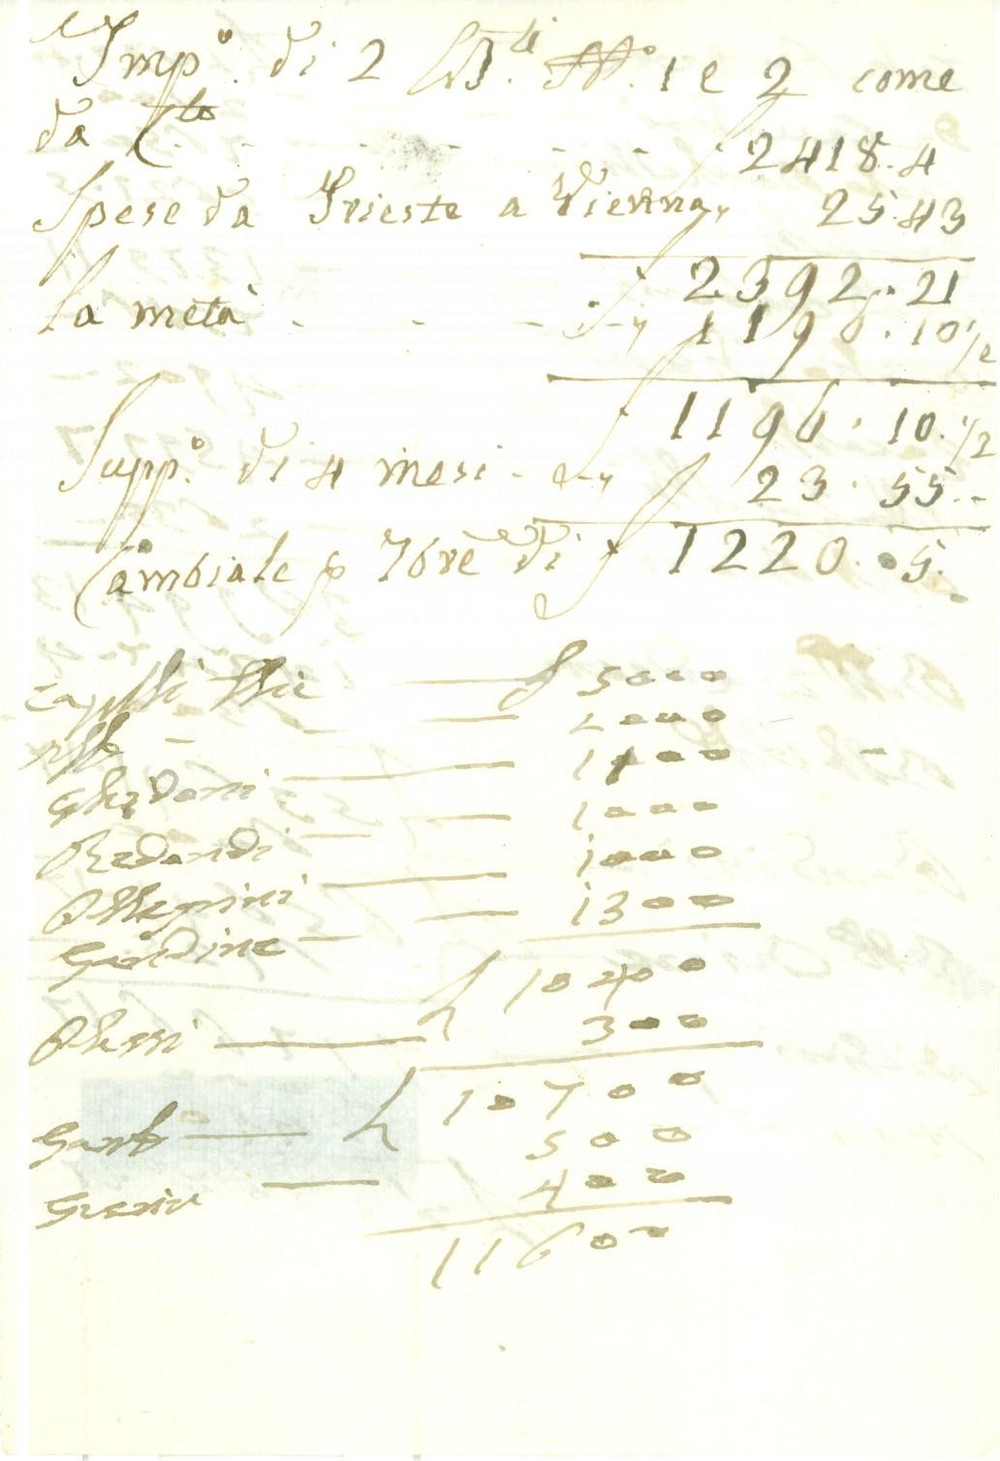 Impº. di 2 Nº. 1 e 2 come
da Cto . . . . . f 2418.4
Spese da Trieste a Vienna, 25.43
f 2392.21
La metà . . . . 1196.10 1/2
f 1196.10 1/2
Suppº. di 4 mesi - 23.55
Cambiale p 7bre di f 1220.5.
5000
2000
Ghidoni 1400
Redondi 1000
Pellegrini 1000
Gardine 1300
10400
Plessi 300
10700
500
400
11600